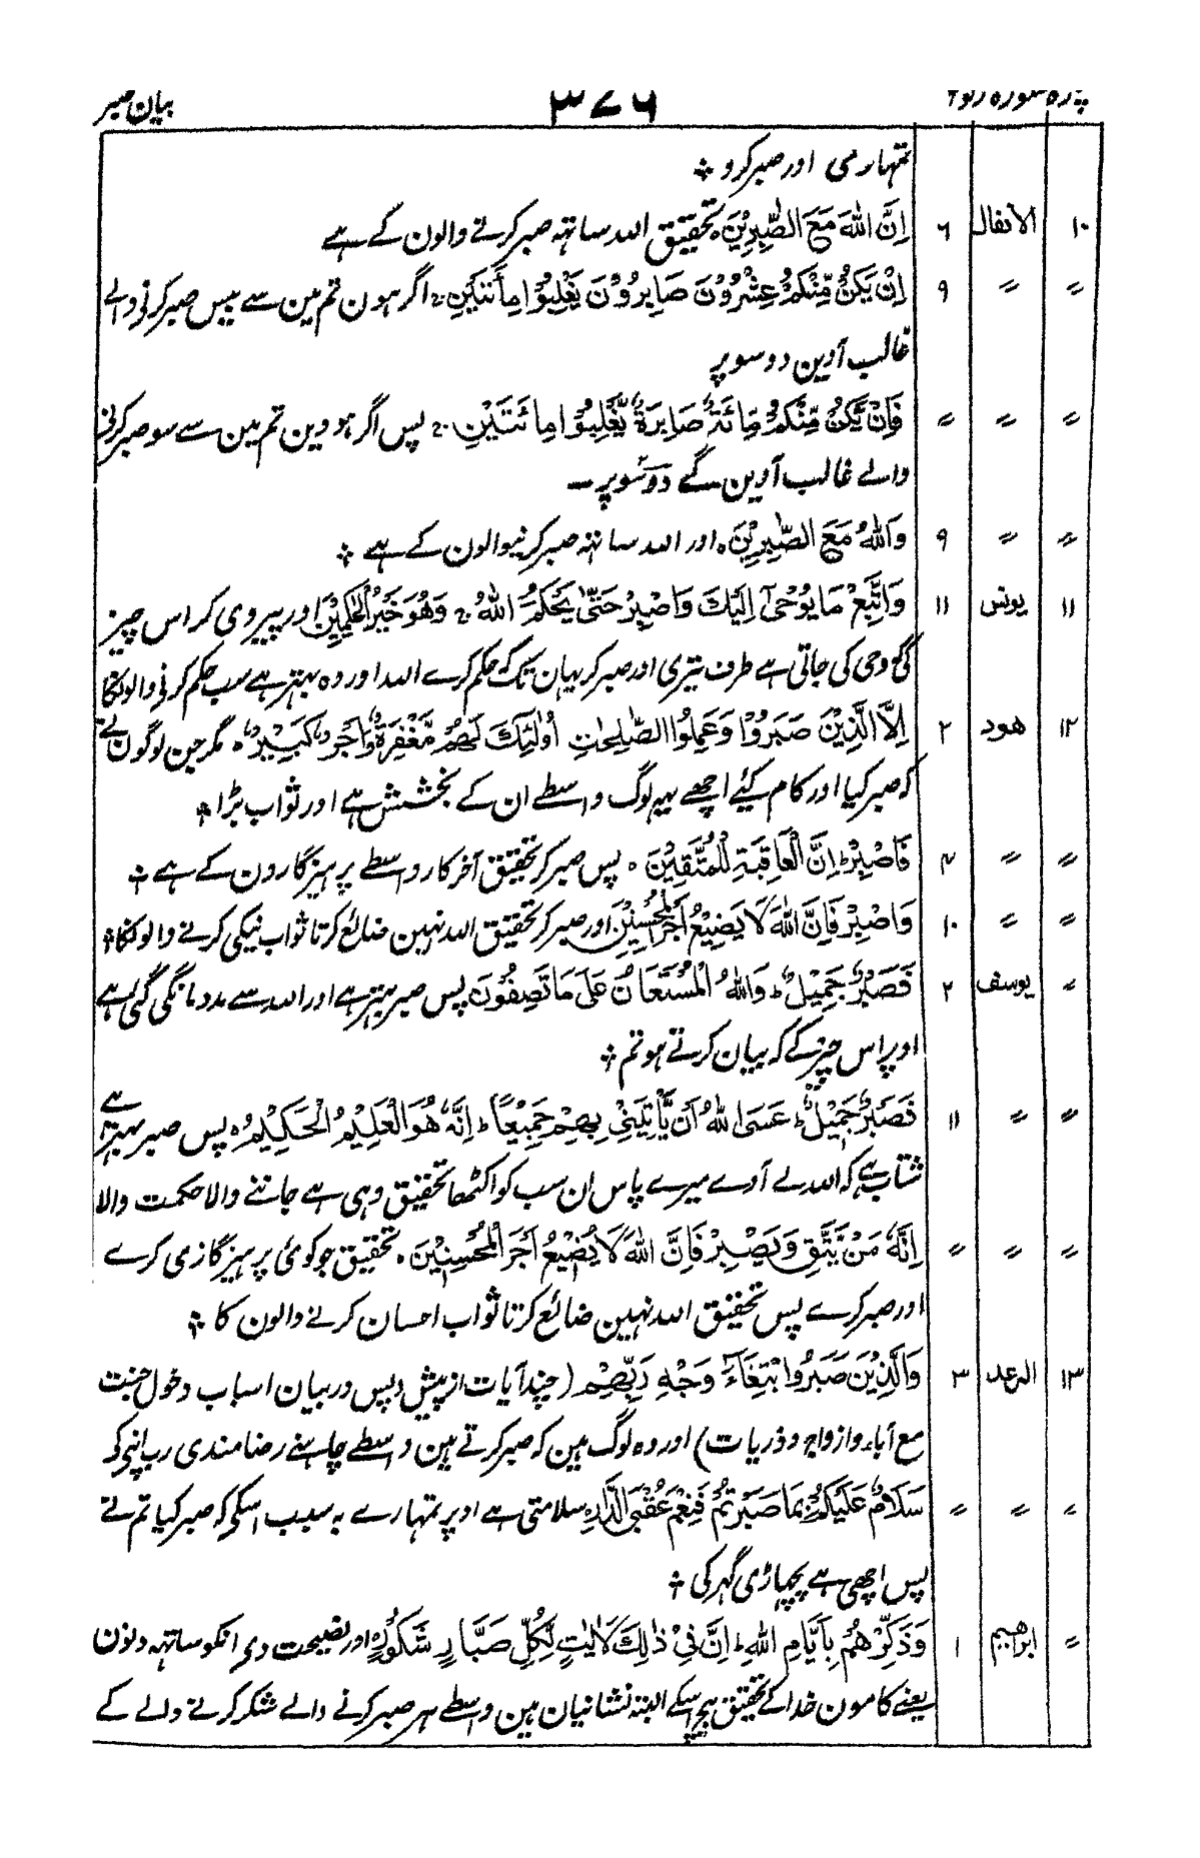 پارہ سورہ رکوع ۳۷۶ بیان صبر
تمہاری اور صبر کرو ❊
۱۰ الانفال ۶ اِنَّ اللّٰهَ مَعَ الصّٰبِرِیْنَ ۰ تحقیق اللہ ساتہہ صبر کرنے والون کے ہے
〃 〃 ۹ اِنْ یَّكُنْ مِّنْكُمْ عِشْرُوْنَ صَابِرُوْنَ یَغْلِبُوْا مِأَتَیْنِ ۰ اگر ہون تم مین سے بیس صبر کرنی والے
غالب آوین دو سو پر
〃 〃 〃 فَاِنْ یَّكُنْ مِّنْكُمْ مِّائَةٌ صَابِرَةٌ یَّغْلِبُوْا مِائَتَیْنِ ۰ پس اگر ہووین تم مین سے سو صبر کرنے
والے غالب آوین گے دو سو پر —
〃 〃 ۹ وَاللّٰهُ مَعَ الصّٰبِرِیْنَ ۰ اور اللہ ساتہہ صبر کرنیوالون کے ہے ❊
۱۱ یونس ۱۱ وَاتَّبِعْ مَا یُوْحٰۤی اِلَیْكَ وَاصْبِرْ حَتّٰی یَحْكُمَ اللّٰهُ ۰ وَهُوَ خَیْرُ الْحٰكِمِیْنَ اور پیروی کر اس چیز
کی کہ وحی کی جاتی ہے طرف تیری اور صبر کر یہان تک کہ حکم کرے اللہ اور وہ بہتر ہے سب حکم کرنی والونکا
۱۲ هود ۲ اِلَّا الَّذِیْنَ صَبَرُوْا وَعَمِلُوا الصّٰلِحٰتِ اُولٰٓئِكَ لَهُمْ مَّغْفِرَةٌ وَّاَجْرٌ كَبِیْرٌ ۰ مگر جن لوگون نے
کہ صبر کیا اور کام کیئے اچھے یہہ لوگ واسطے ان کے بخشش ہے اور ثواب بڑا ❊
〃 〃 ۴ فَاصْبِرْ ط اِنَّ الْعَاقِبَةَ لِلْمُتَّقِیْنَ ۰ پس صبر کر تحقیق آخر کار واسطے پرہیزگارون کے ہے ❊
〃 〃 ۱۰ وَاصْبِرْ فَاِنَّ اللّٰهَ لَا یُضِیْعُ اَجْرَ الْمُحْسِنِیْنَ اور صبر کر تحقیق اللہ نہین ضائع کرتا ثواب نیکی کرنے والونکا ❊
〃 یوسف ۲ فَصَبْرٌ جَمِیْلٌ ط وَاللّٰهُ الْمُسْتَعَانُ عَلٰی مَا تَصِفُوْنَ پس صبر بہتر ہے اور اللہ سے مدد مانگی گئی ہے
اوپر اس چیز کے کہ بیان کرتے ہو تم ❊
〃 〃 ۱۱ فَصَبْرٌ جَمِیْلٌ ط عَسَی اللّٰهُ اَنْ یَّاْتِیَنِیْ بِهِمْ جَمِیْعًا ط اِنَّهٗ هُوَ الْعَلِیْمُ الْحَكِیْمُ ۰ پس صبر بہتر ہے
شتاب ہے کہ اللہ لے آوے میرے پاس ان سب کو اکٹھا تحقیق وہی ہے جاننے والا حکمت والا
〃 〃 〃 اِنَّهٗ مَنْ یَّتَّقِ وَیَصْبِرْ فَاِنَّ اللّٰهَ لَا یُضِیْعُ اَجْرَ الْمُحْسِنِیْنَ ۰ تحقیق جو کوئی پرہیزگاری کرے
اور صبر کرے پس تحقیق اللہ نہین ضائع کرتا ثواب احسان کرنے والون کا ❊
۱۳ الرعد ۳ وَالَّذِیْنَ صَبَرُوا ابْتِغَآءَ وَجْهِ رَبِّهِمْ (چند آیات از پیش و پس در بیان اسباب دخول جنت
مع آباء و ازواج و ذریات) اور وہ لوگ ہین کہ صبر کرتے ہین واسطے چاہنے رضامندی رب اپنی کے
〃 〃 〃 سَلَامٌ عَلَیْكُمْ بِمَا صَبَرْتُمْ فَنِعْمَ عُقْبَی الدَّارِ سلامتی ہے اوپر تمہارے بہ سبب اسکی کہ صبر کیا تم نے
پس اچھی ہے پچھاڑی گہر کی ❊
〃 ابراهیم ۱ وَذَكِّرْهُمْ بِاَیَّامِ اللّٰهِ ط اِنَّ فِیْ ذٰلِكَ لَاٰیٰتٍ لِّكُلِّ صَبَّارٍ شَكُوْرٍ ۰ اور نصیحت دی انکو ساتہہ دنون
یعنے کامون خدا کے تحقیق بیچ اسکے البتہ نشانیان ہین واسطے ہر صبر کرنے والے شکر کرنے والے کے